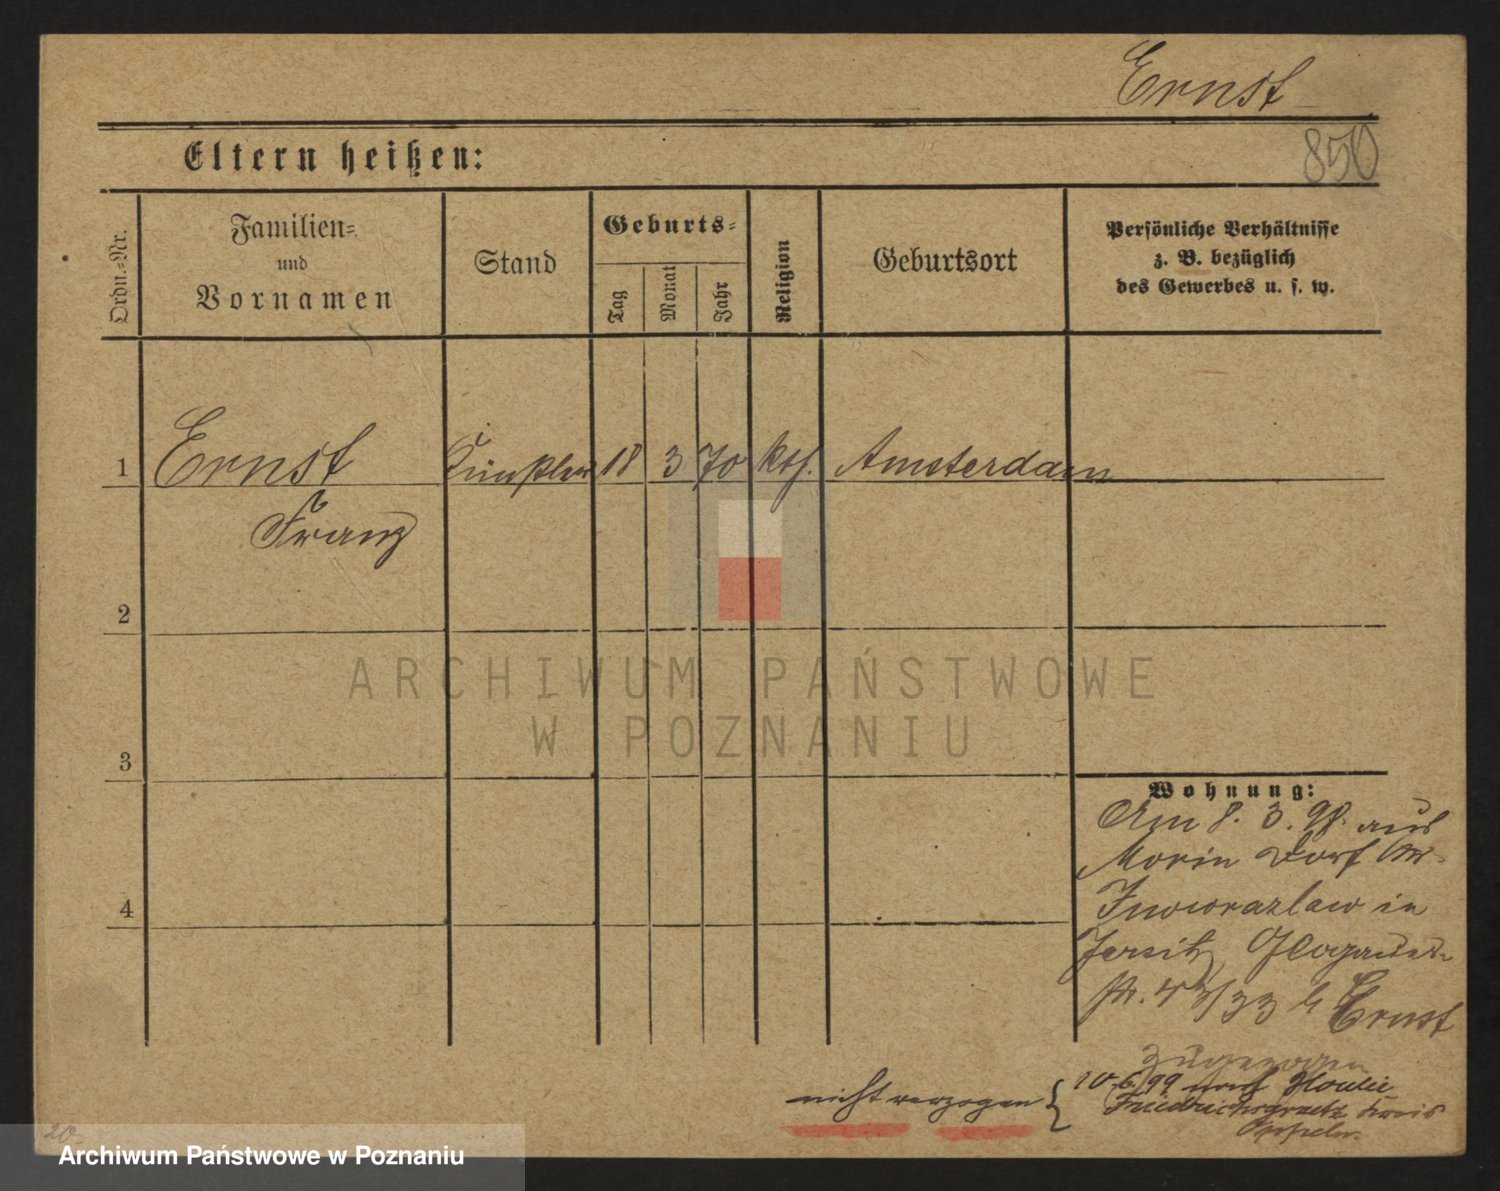 Ernst
850
Eltern heißen:
Ordn.=Nr.
Familien=
und
Vornamen
Stand
Geburts=
Tag
Monat
Jahr
Religion
Geburtsort
Persönliche Verhältnisse
z. B. bezüglich
des Gewerbes u. s. w.
1
Ernst Künstler 18 3 70 kth. Amsterdam
Franz
2
ARCHIWUM PAŃSTWOWE
W POZNANIU
3
4
Wohnung:
Am 8. 3. 98. aus
Morin Dorf Kr.
Inowrazlaw in
Jersitz Glogauer
str. Ernst
zugezogen
nicht verzogen { 20 6/99 nach
Friedrichsgraetz Kreis
Oppeln.
20
Archiwum Państwowe w Poznaniu